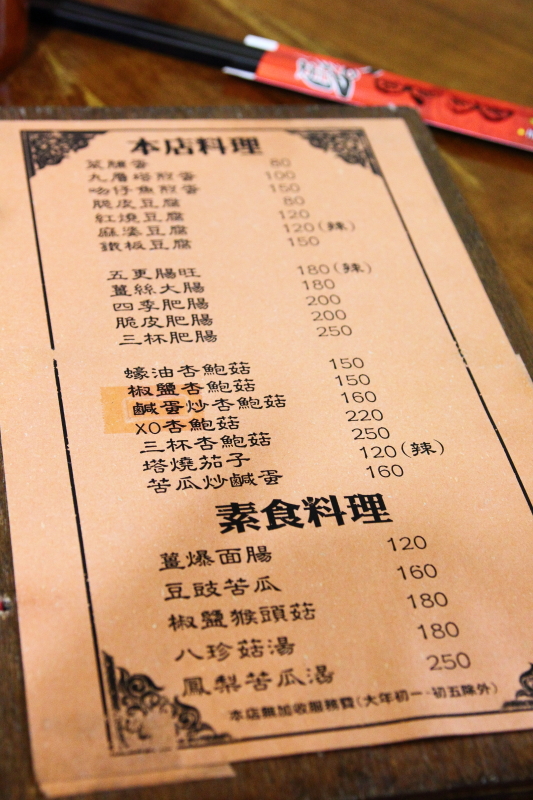 本店料理
菜脯蛋 80
九層塔煎蛋 100
吻仔魚煎蛋 150
脆皮豆腐 80
紅燒豆腐 120
麻婆豆腐 120(辣)
鐵板豆腐 150
五更腸旺 180(辣)
薑絲大腸 180
四季肥腸 200
脆皮肥腸 200
三杯肥腸 250
蠔油杏鮑菇 150
椒鹽杏鮑菇 150
鹹蛋炒杏鮑菇 160
XO杏鮑菇 220
三杯杏鮑菇 250
塔燒茄子 120(辣)
苦瓜炒鹹蛋 160
素食料理
薑爆面腸 120
豆豉苦瓜 160
椒鹽猴頭菇 180
八珍菇湯 180
鳳梨苦瓜湯 250
本店無加收服務費(大年初一-初五除外)